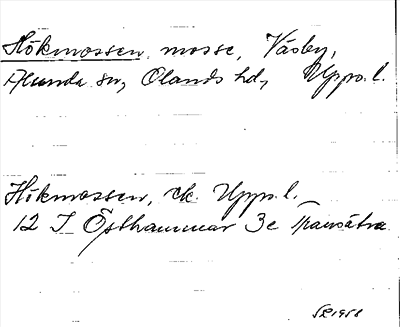 Hökmossen, mosse, Väsby,
Alunda sn, Olands hd, Upps. l.
Hökmossen, ek. Upps. l.
12 I Östhammar 3e Transätra
SR 1958